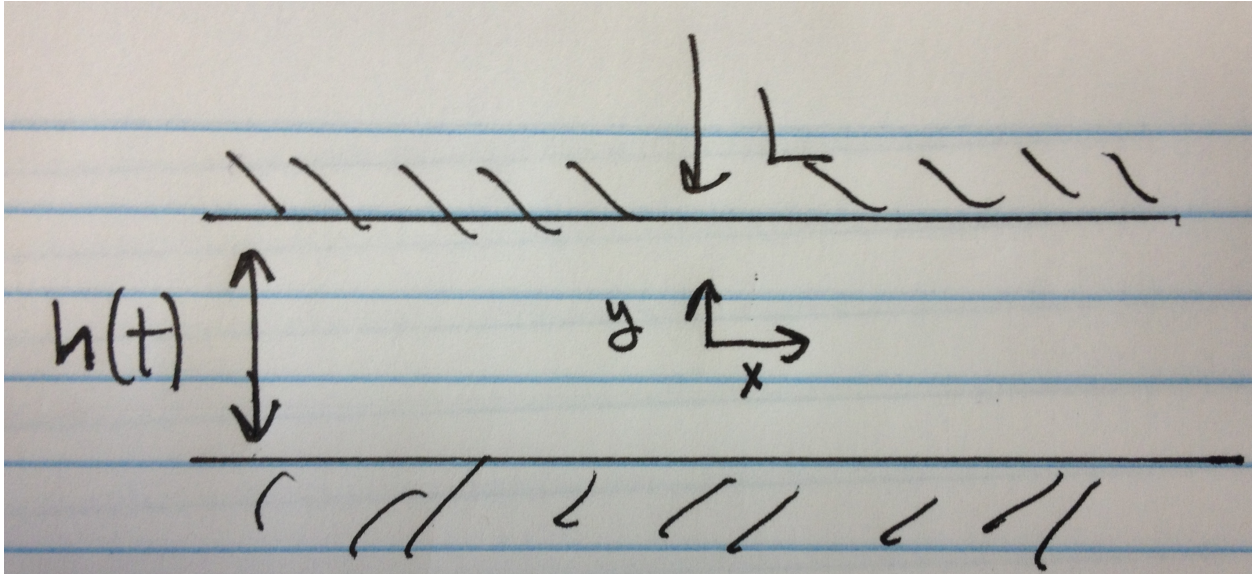 L
h(t)
y
x